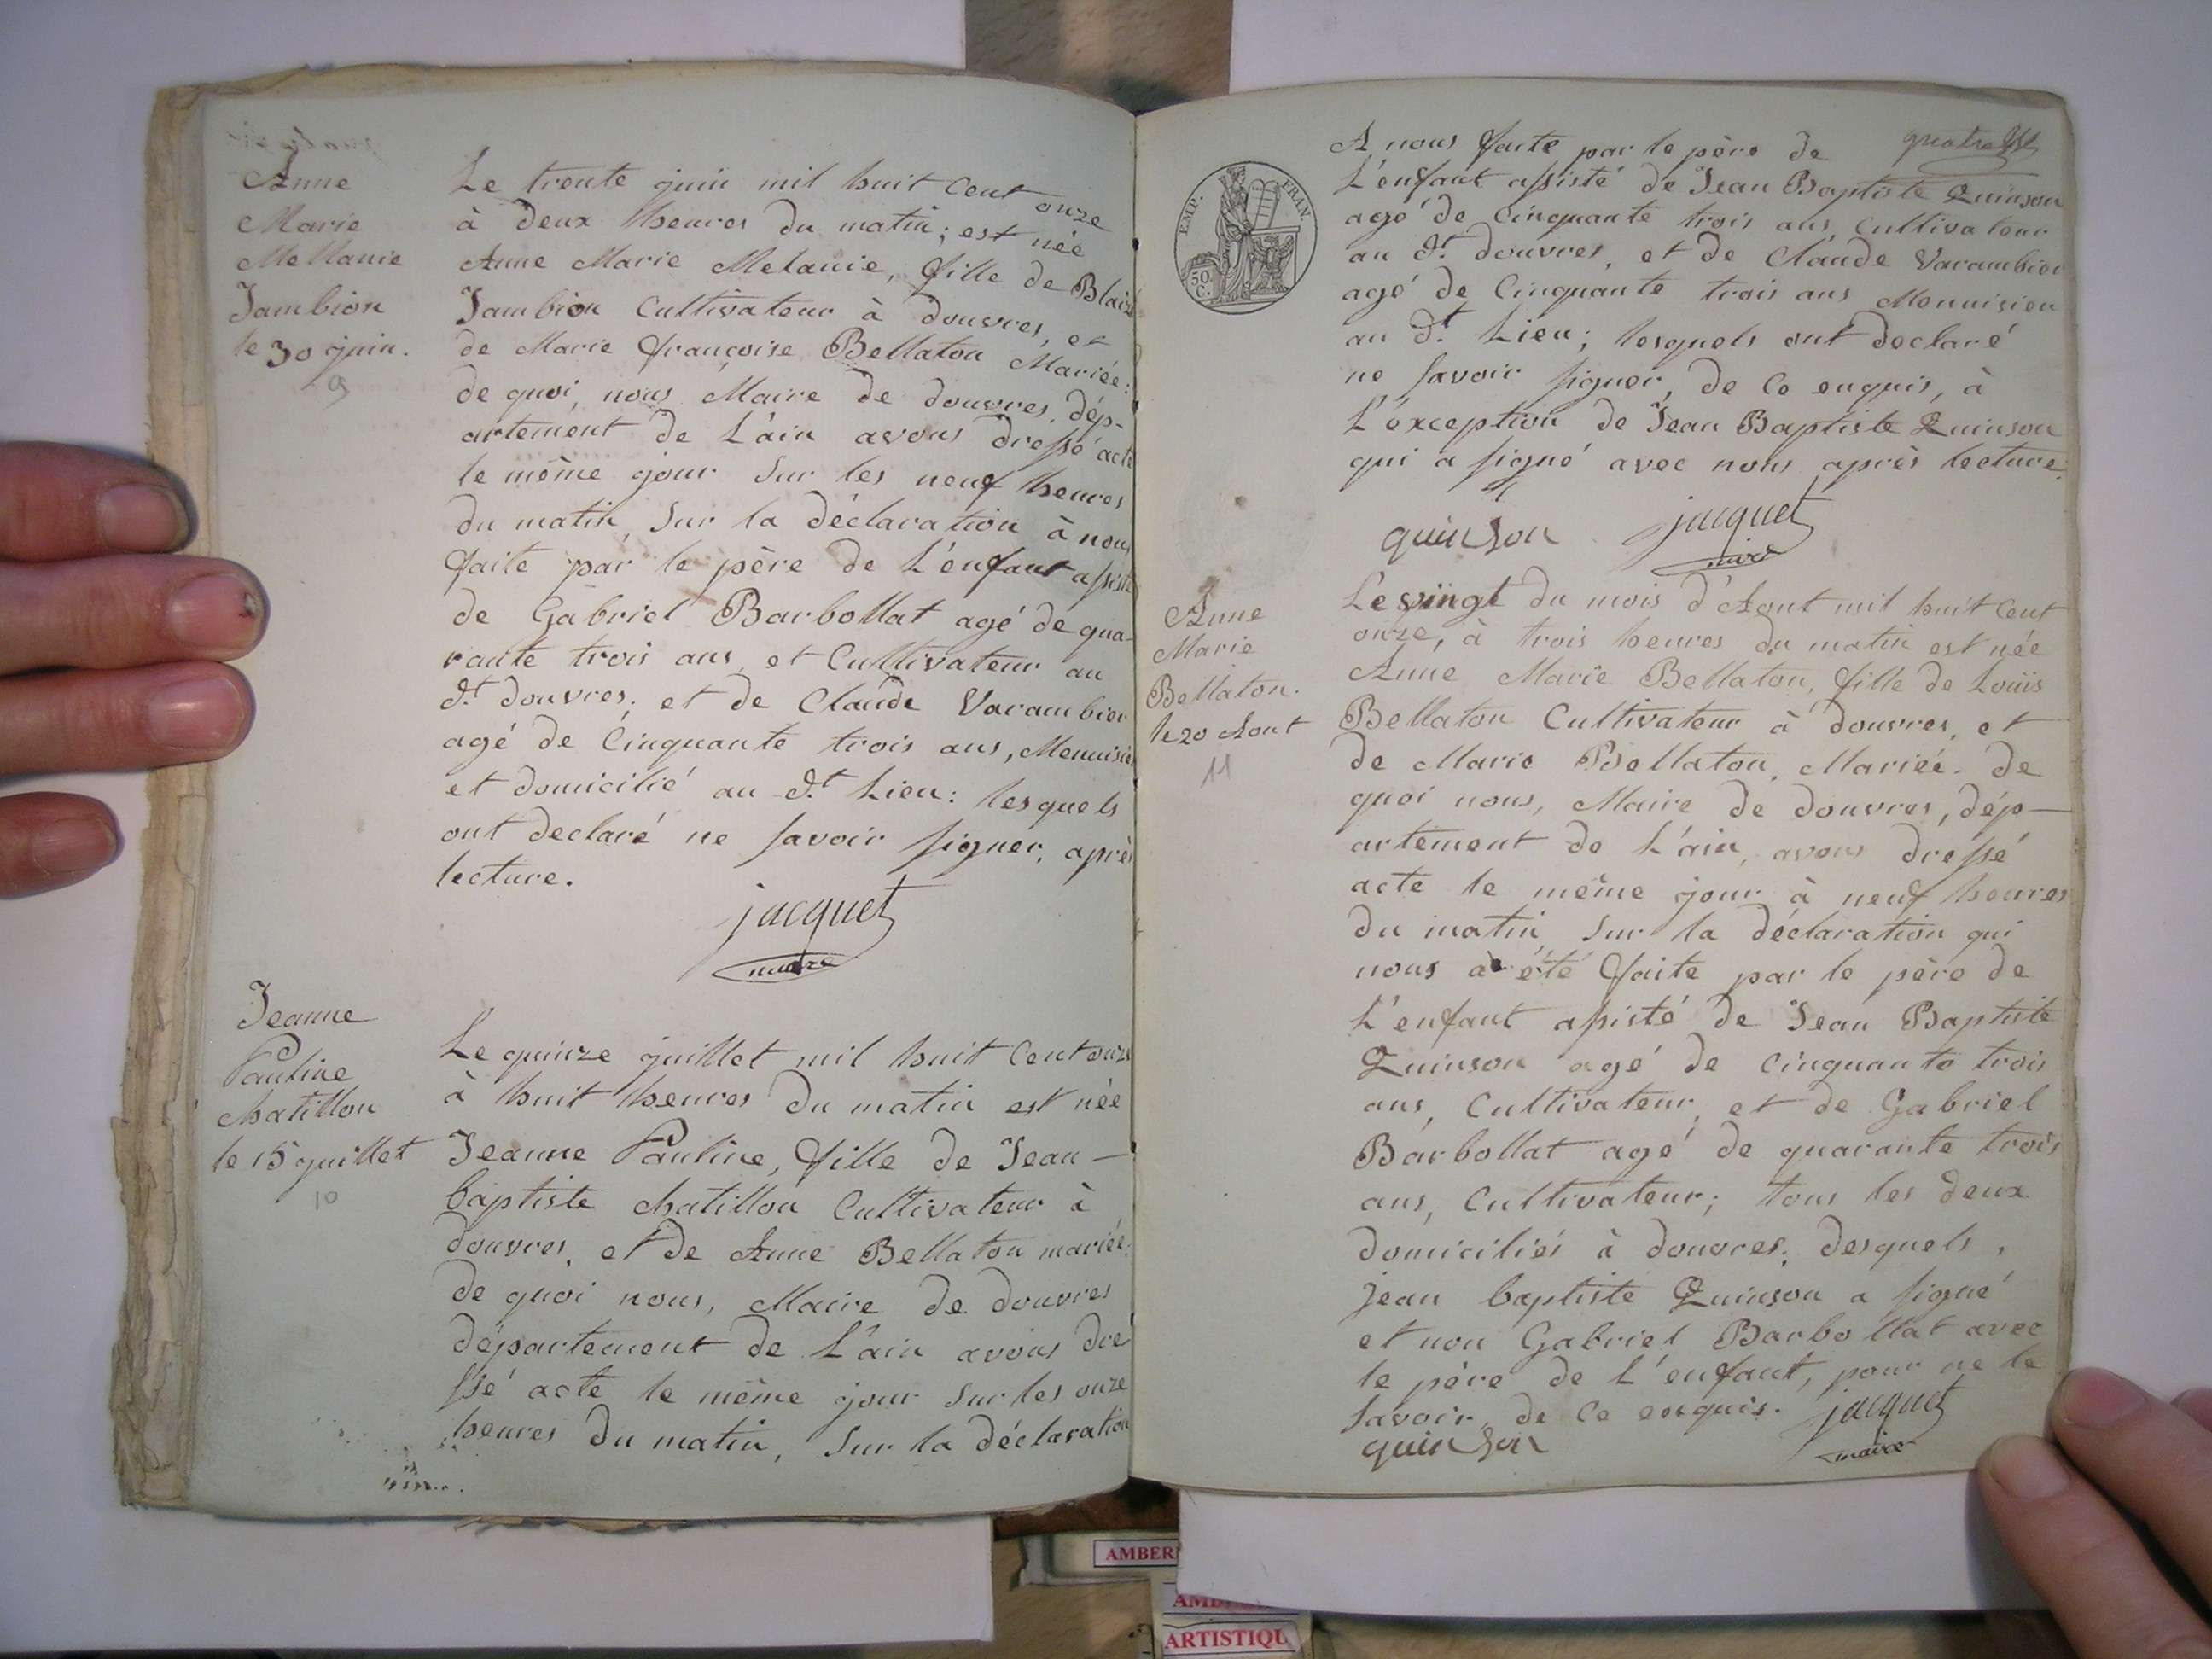 Anne
Marie
Mellanie
Jambion
le 30 juin.
9
Le trente juin mil huit cent onze
à deux heures du matin; est née
Anne Marie Melanie, fille de Blaise
Jambion Cultivateur à douvres, et
de Marie françoise Bellaton Mariée:
de quoi, nous Maire de douvres, dép-
artement de L'ain avons dressé acte
le même jour sur les neuf heures
du matin, sur la déclaration à nous
faite par le père de L'enfant assisté
de Gabriel Barbollat agé de qua-
rante trois ans, et Cultivateur au
d.t douvres; et de Claude Varambier
agé de Cinquante trois ans, Menuisier
et domicilié au d.t Lieu: lesquels
ont declaré ne savoir signer, après
lecture.
jacquet
maire
Jeanne
Pauline
chatillon
le 15 juillet
10
Le quinze juillet mil huit Cent onze
à huit heures du matin est née
Jeanne Pauline, fille de Jean-
baptiste chatillon Cultivateur à
douvres, et de Anne Bellaton mariée:
de quoi nous, Maire de douvres
département de L'ain avons dre
ssé acte le même jour sur les onze
heures du matin, sur la déclaration
EMP. FRAN.
50 C.
A nous faite par le père de
L'enfant assisté de Jean Baptiste Quinson
agé de Cinquante trois ans, Cultivateur
au d.t douvres, et de Claude Varambier
agé de Cinquante trois ans Menuisier
au d.t Lieu; lesquels ont declaré
ne savoir signer, de Ce enquis, à
L'éxception de Jean Baptiste Quinson
qui a signé avec nous après lecture.
quinson jacquet
maire
Anne
Marie
Bellaton.
le 20 Aout
11
Le vingt du mois d'Aout mil huit Cent
onze, à trois heures du matin est née
Anne Marie Bellaton, fille de Louis
Bellaton Cultivateur à douvres, et
de Marie Bellaton, Mariée. de
quoi nous, Maire de douvres, dép-
artement de L'ain, avons dressé
acte le même jour à neuf heures
du matin, sur la déclaration qui
nous à été faite par le père de
L'enfant assisté de Jean Baptiste
Quinson agé de Cinquante trois
ans, Cultivateur, et de Gabriel
Barbollat agé de quarante trois
ans, Cultivateur; tous les deux
domiciliés à douvres; desquels,
jean baptiste Quinson a signé
et non Gabriel Barbollat avec
le père de L'enfant, pour ne le
savoir, de Ce enquis. jacquet
quinson maire
AMBER
ARTISTIQU